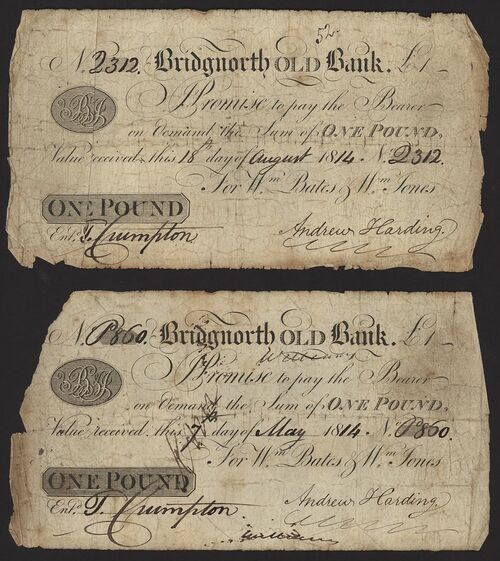 52
N. D312. Bridgnorth OLD Bank. £1
I Promise to pay the Bearer
on Demand, the Sum of ONE POUND,
Value received, this 18th day of August 1814. N. D312.
For Wm. Bates & Wm. Jones
ONE POUND
Entd. T. Crumpton.
Andrew Harding.
N. P860. Bridgnorth OLD Bank. £1
I Promise to pay the Bearer
on Demand, the Sum of ONE POUND,
Value received, this day of May 1814. N. P860.
For Wm. Bates & Wm. Jones
ONE POUND
Entd. T. Crumpton.
Andrew Harding.